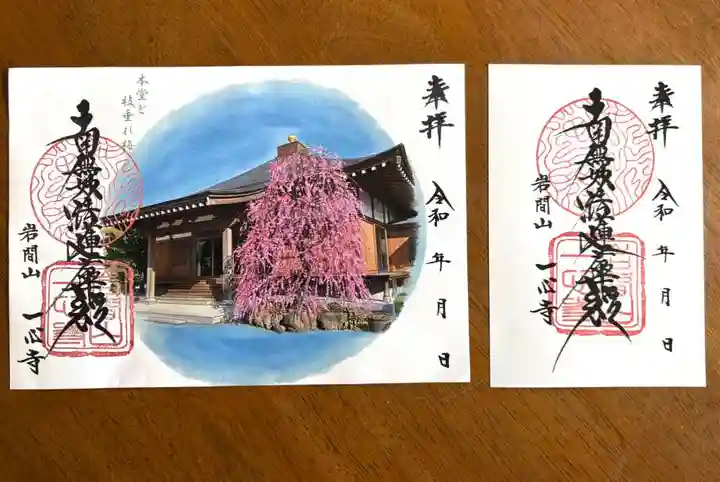 奉拝
令和　年　月　日
本堂と
枝垂れ梅
南無妙法蓮華経
岩間山　一心寺
奉拝
令和　年　月　日
南無妙法蓮華経
岩間山　一心寺